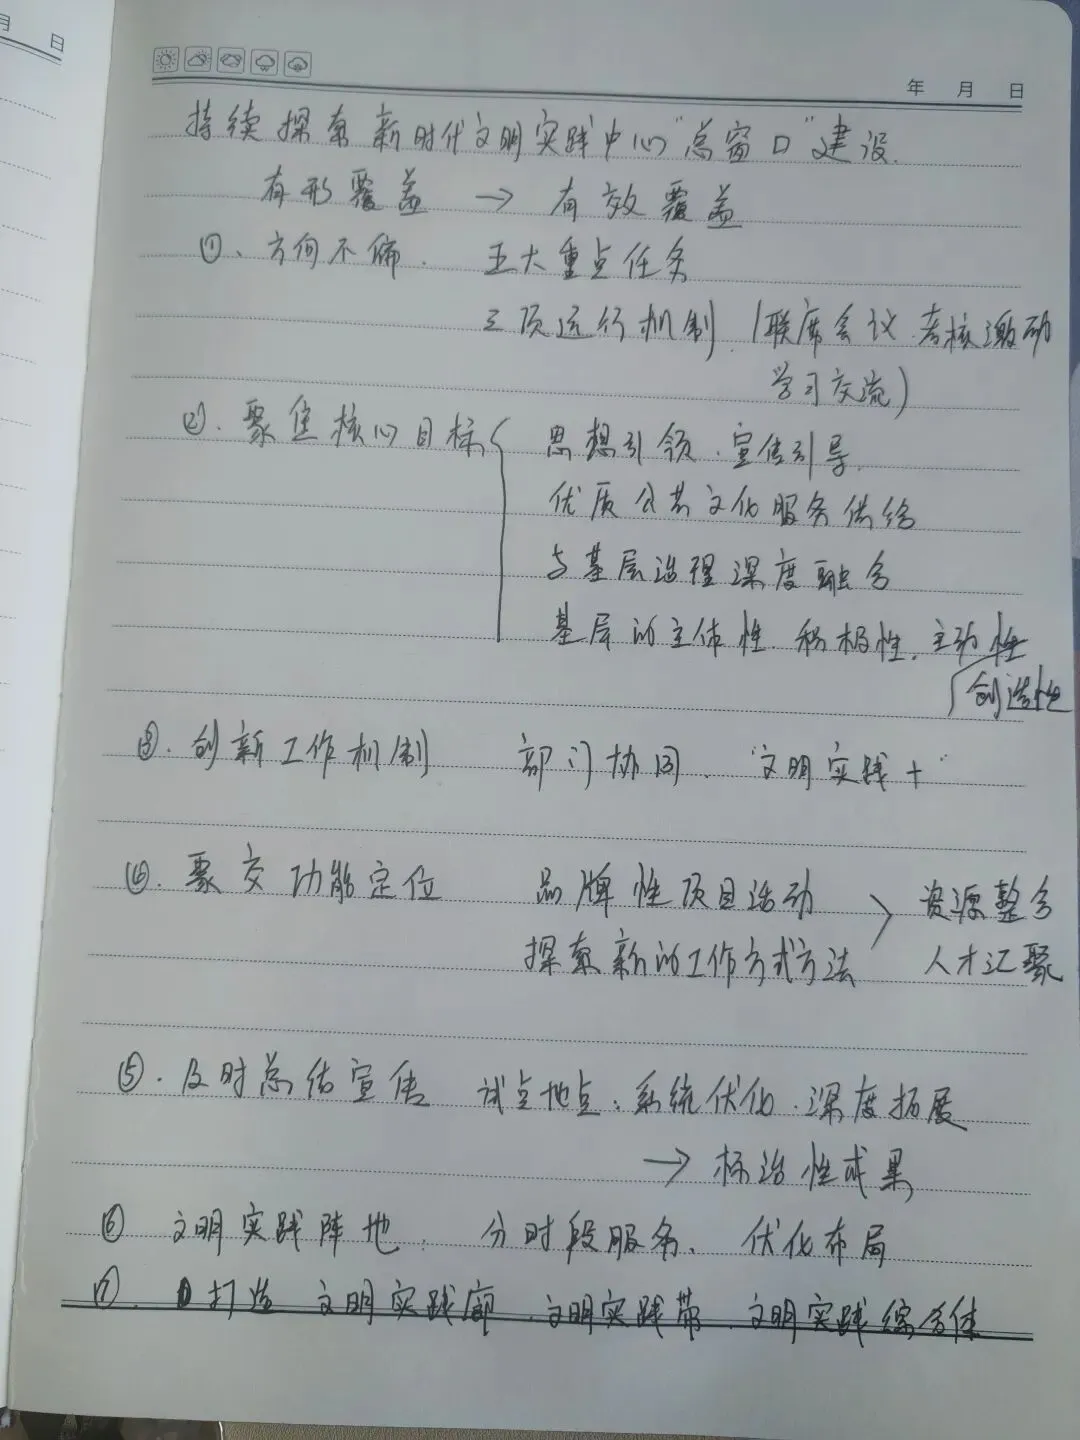 月 日
年 月 日
持续探索新时代文明实践中心"总窗口"建设.
有形覆盖 → 有效覆盖
①、方向不偏. 五大重点任务
三项运行机制.(联席会议.考核激励
学习交流)
②.聚焦核心目标{ 思想引领.宣传引导.
优质公共文化服务供给
与基层治理深度融合
基层的主体性.积极性.主动性
创造性
③.创新工作机制 部门协同."文明实践+"
④.聚交功能定位 品牌性项目活动 > 资源整合
探索新的工作方式方法 人才汇聚
⑤.及时总结宣传 试点地点:系统优化.深度拓展
→ 标治性成果
⑥ 文明实践阵地: 分时段服务、优化布局
⑦. 打造 文明实践廊.文明实践带.文明实践综合体